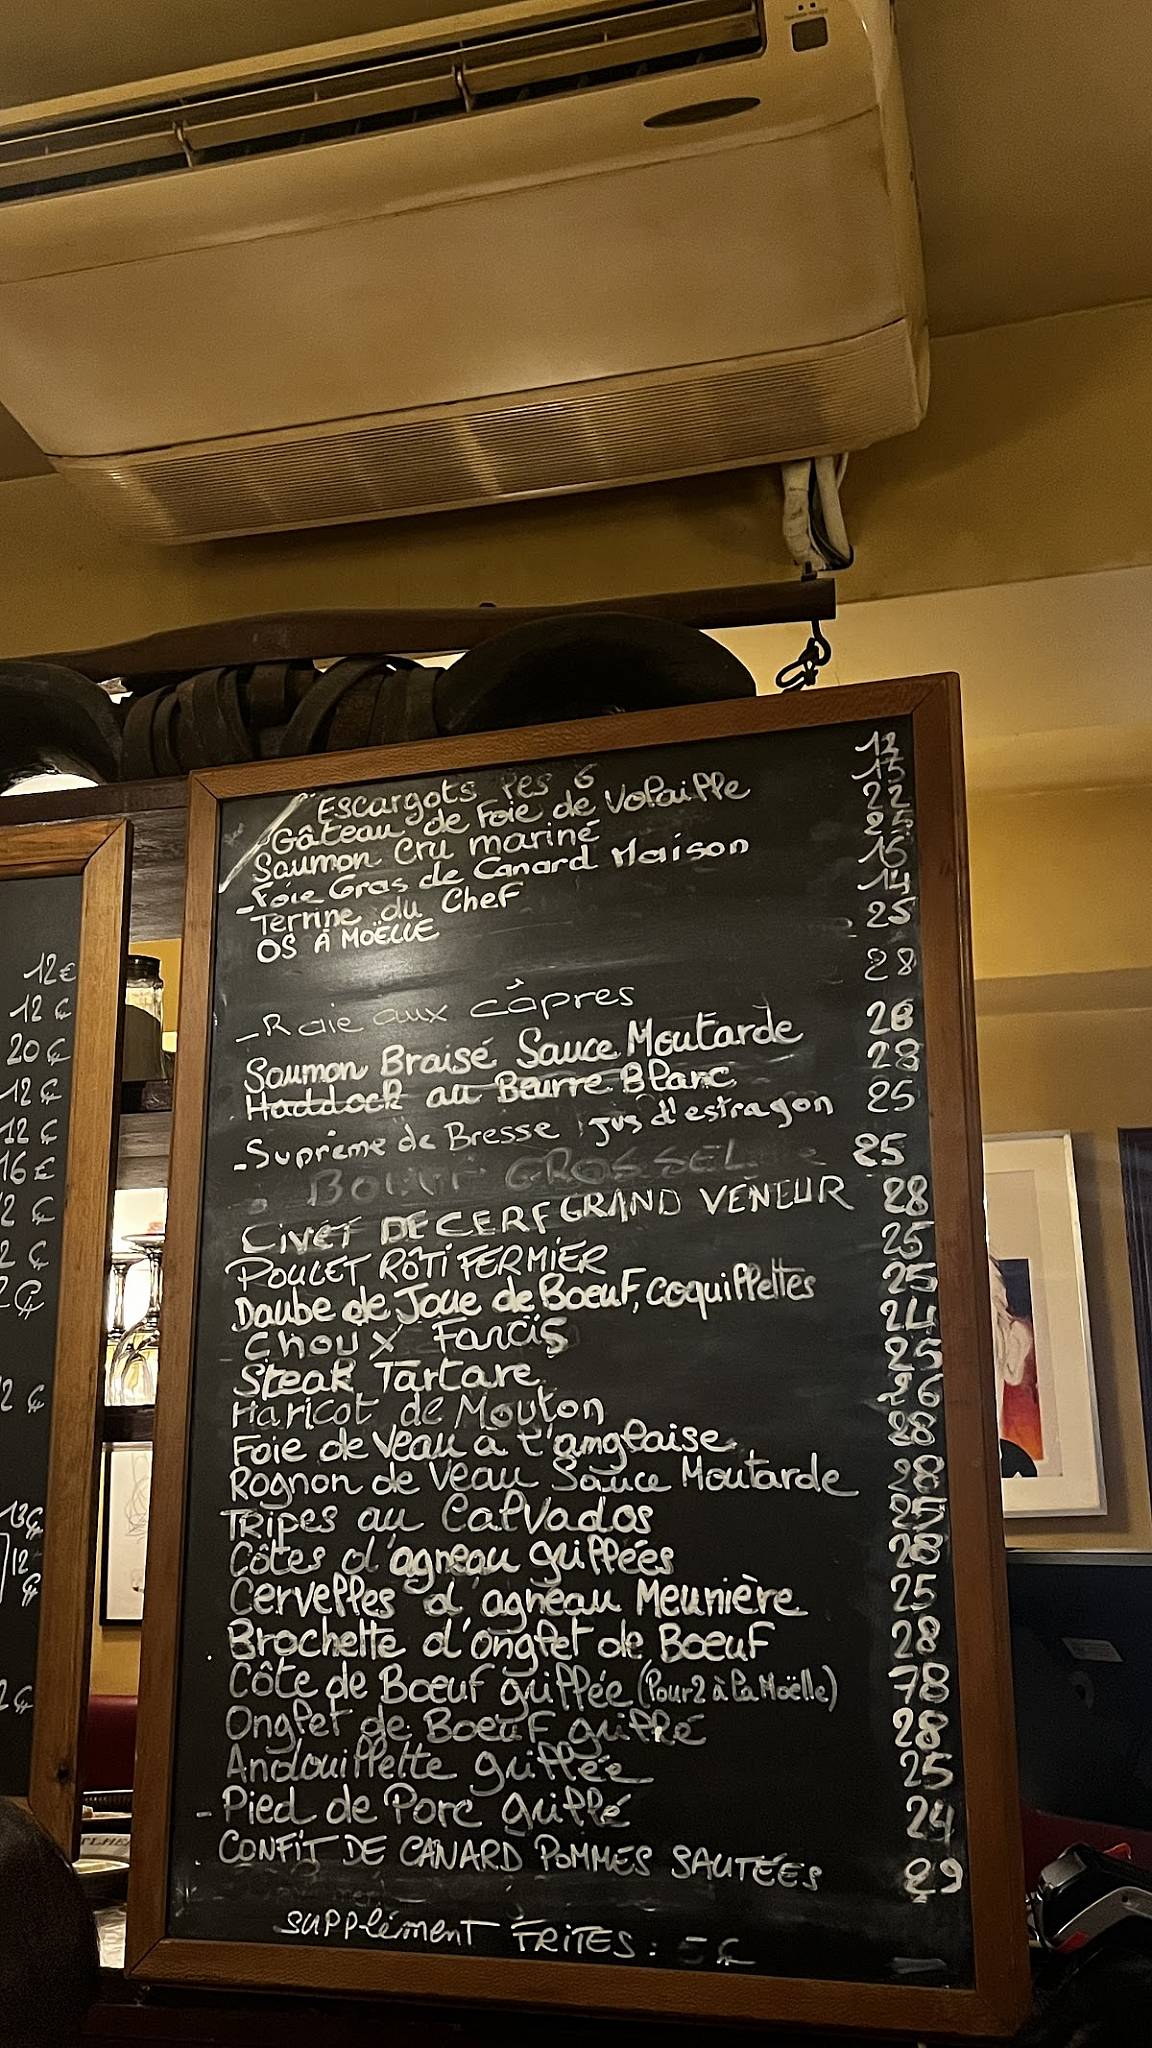 12€
12€
20€
12€
12€
16€
2€
2€
2€
2€
13€
12
€
2€
Escargots les 6
Gâteau de Foie de Volaille
Saumon Cru mariné
- Foie Gras de Canard Maison
Terrine du Chef
OS À MOËLLE
- Raie aux câpres
Saumon Braisé Sauce Moutarde
Haddock au Beurre Blanc
- Suprême de Bresse jus d'estragon
BOEUF GROS SEL
CIVET DE CERF GRAND VENEUR
POULET RÔTI FERMIER
Daube de Joue de Boeuf, coquillettes
Choux Farcis
Steak Tartare
Haricot de Mouton
Foie de Veau à l'anglaise
Rognon de Veau Sauce Moutarde
Tripes au Calvados
Côtes d'agneau grillées
Cervelles d'agneau Meunière
Brochette d'onglet de Boeuf
Côte de Boeuf grillée (Pour 2 à la Moëlle)
Onglet de Boeuf grillé
Andouillette grillée
- Pied de Porc grillé
CONFIT DE CANARD POMMES SAUTÉES
22
14
25
28
28
25
25
28
25
25
24
25
26
28
28
25
28
25
28
78
28
25
24
29
SUPPlément FRITES : 5€